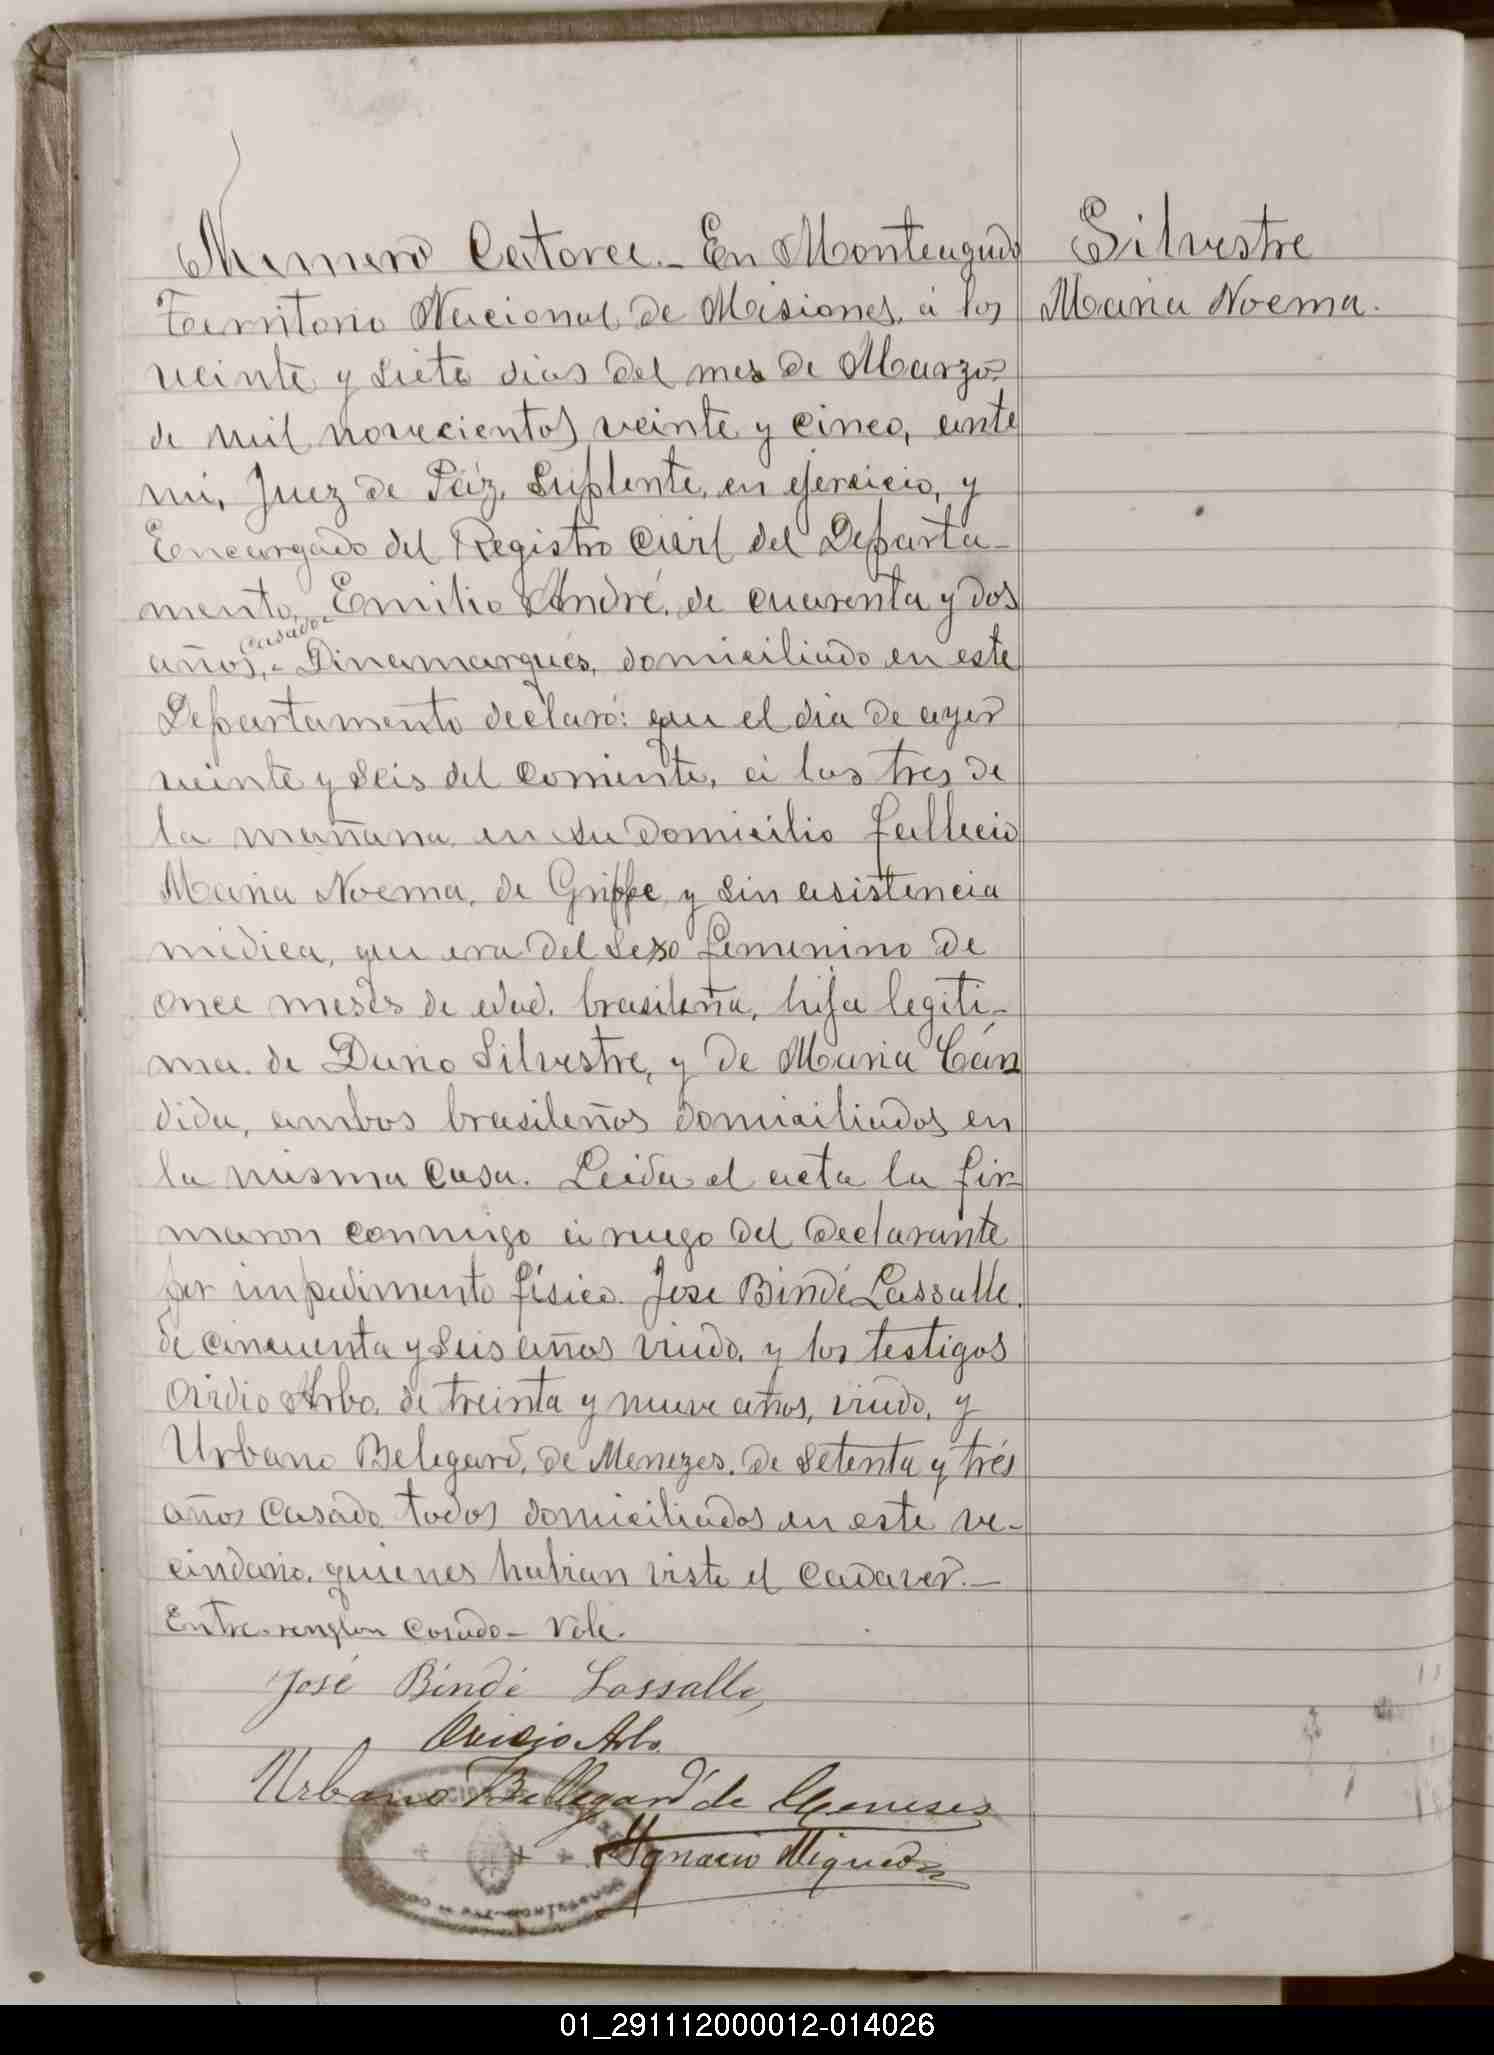 Numero Catorce.- En Monteagudo
Territorio Nacional de Misiones, á los
veinte y siete dias del mes de Marzo
de mil novecientos veinte y cinco, ante
mi, Juez de Páz, Suplente, en ejercicio, y
Encargado del Registro Civil del Departa-
mento, Emilio André, de cuarenta y dos
casado-
años,- Dinamarqués, domiciliado en este
Departamento declaró: que el dia de ayer
veinte y seis del corriente, á las tres de
la mañana, en su domicilio falleció
Maria Noema, de Grippe, y sin asistencia
médica, que era del sexo femenino de
once meses de edad, brasileña, hija legiti-
ma de Dario Silvestre, y de Maria Cán
dida, ambos brasileños domiciliados en
la misma casa. Leida el acta la fir-
maron conmigo á ruego del declarante
por impedimento físico. Jose Bindé Lassalle.
de cincuenta y seis años viudo, y los testigos
Ovidio Arbo, de treinta y nueve años, viudo, y
Urbano Belegard, de Menezes, de setenta y trés
años casado todos domiciliados en este ve-
cindario, quienes habian visto el cadaver.-
Entre-renglon casado- Vale.
José Bindé Lassalle,
Ovidio Arbo
Urbano Bellegard de Meneses
Ignacio
Silvestre
Maria Noema.
01_291112000012-014026